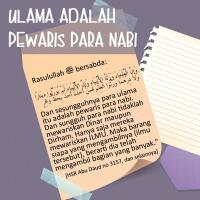 ULAMA ADALAH
PEWARIS PARA NABI
Rasulullah ﷺ bersabda:
Dan sesungguhnya para ulama
itu adalah pewaris para nabi.
Dan sungguh para nabi tidaklah
mewariskan Dinar maupun
Dirham. Hanya saja mereka
mewariskan ILMU. Maka barang
siapa yang mengambilnya (ilmu
tersebut), berarti dia telah
mengambil bagian yang banyak."
(HSR Abu Daud no 3157, dan selainnya)